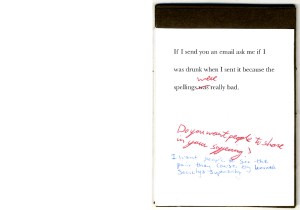 If I send you an email ask me if I
was drunk when I sent it because the
were
spellings was really bad.
Do you want people to share
in your suffering?
I want people to see the
pain they cause by